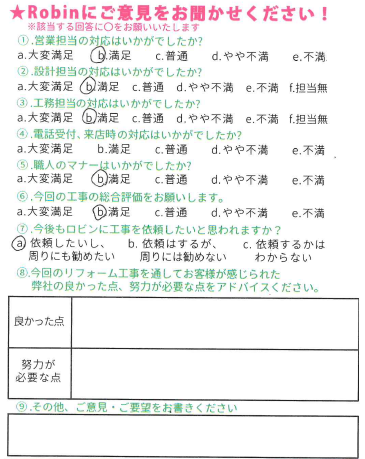 ★Robinにご意見をお聞かせください！
※該当する回答に〇をお願いいたします
①.営業担当の対応はいかがでしたか?
a.大変満足 b.満足 c.普通 d.やや不満 e.不満
②.設計担当の対応はいかがでしたか?
a.大変満足 b.満足 c.普通 d.やや不満 e.不満 f.担当無
③.工務担当の対応はいかがでしたか?
a.大変満足 b.満足 c.普通 d.やや不満 e.不満 f.担当無
④.電話受付、来店時の対応はいかがでしたか?
a.大変満足 b.満足 c.普通 d.やや不満 e.不満
⑤.職人のマナーはいかがでしたか?
a.大変満足 b.満足 c.普通 d.やや不満 e.不満
⑥.今回の工事の総合評価をお願いします。
a.大変満足 b.満足 c.普通 d.やや不満 e.不満
⑦.今後もロビンに工事を依頼したいと思われますか？
a 依頼したいし、 b. 依頼はするが、 c. 依頼するかは
周りにも勧めたい 周りには勧めない わからない
⑧.今回のリフォーム工事を通してお客様が感じられた
弊社の良かった点、努力が必要な点をアドバイスください。
良かった点
努力が
必要な点
⑨.その他、ご意見・ご要望をお書きください